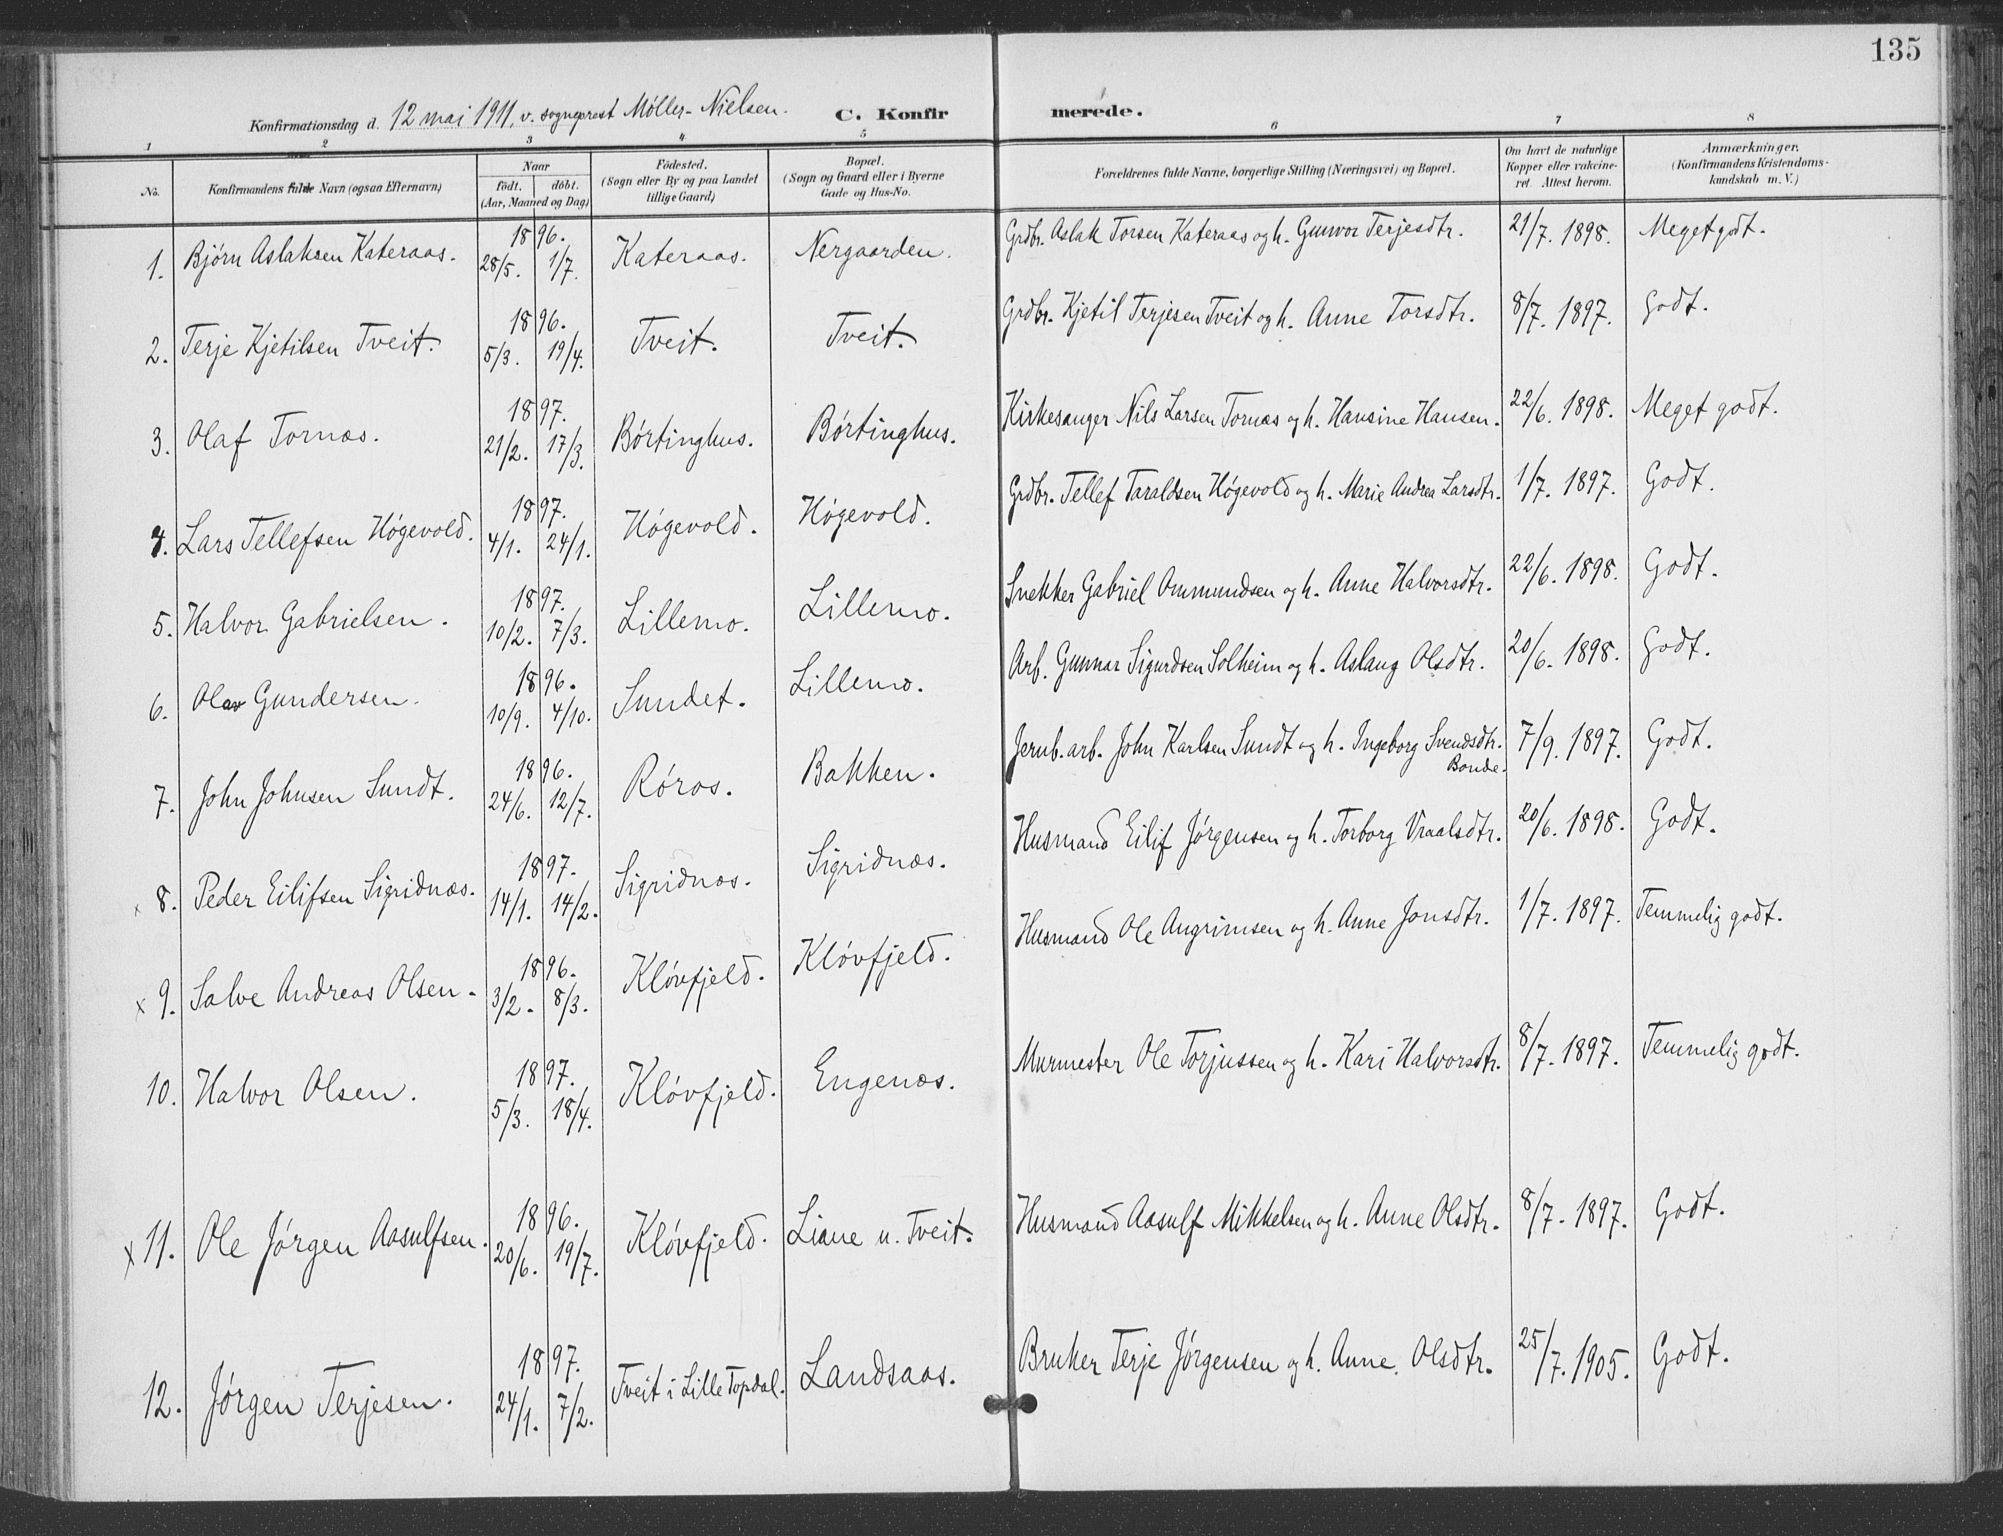 135
Konfirmationsdag d. 12 mai 1911, v. sogneprest Møller-Nielsen. C. Konfir merede.
1 2 3 4 5 6 7 8
No. Konfirmandens fulde Navn (ogsaa Efternavn) Naar født. døbt. (Aar, Maaned og Dag) Fødested. (Sogn eller By og paa Landet tillige Gaard) Bopæl. (Sogn og Gaard eller i Byerne Gade og Hus-No. Forældrenes fulde Navne, borgerlige Stilling (Næringsvei) og Bopæl. Om havt de naturlige Kopper eller vakcineret. Attest herom. Anmærkninger. (Konfirmandens Kristendomskundskab m. V.)
1. Bjørn Aslaksen Kateraas. 1896. 28/5. 1/7. Kateraas. Nergaarden. Grdbr. Aslak Torsen Kateraas og h. Gunvor Terjesdtr. 21/7. 1898. Meget godt.
2. Terje Kjetilsen Tveit. 1896. 5/3. 19/4. Tveit. Tveit. Grdbr. Kjetil Terjesen Tveit og h. Anne Torsdtr. 8/7. 1897. Godt.
3. Olaf Tornæs. 1897. 21/2. 17/3. Børtinghus. Børtinghus. Kirkesanger Nils Larsen Tornæs og h. Hansine Hansen. 22/6. 1898. Meget godt.
4. Lars Tellefsen Høgevold. 1897. 4/1. 24/1. Høgevold. Høgevold. Grdbr. Tellef Taraldsen Høgevold og h. Marie Andrea Larsdtr. 1/7. 1897. Godt.
5. Halvor Gabrielsen. 1897. 10/2. 7/3. Lillemo. Lillemo. Snekker Gabriel Ommundsen og h. Anne Halvorsdtr. 22/6. 1898. Godt.
6. Olav Gundersen. 1896. 10/9. 4/10. Sundet. Lillemo. Arb. Gunnar Sigurdsen Solheim og h. Aslaug Olsdtr. 20/6. 1898. Godt.
7. John Johnsen Sundt. 1896. 24/6. 12/7. Røros. Bakken. Jernb. arb. John Karlsen Sundt og h. Ingeborg Svendsdtr. Bonde. 7/9. 1897. Godt.
x 8. Peder Eilifsen Sigridnæs. 1897. 14/1. 14/2. Sigridnæs. Sigridnæs. Husmand Eilif Jørgensen og h. Torborg Vraalsdtr. 20/6. 1898. Godt.
x 9. Salve Andreas Olsen. 1896. 3/2. 8/3. Kløvfjeld. Kløvfjeld. Husmand Ole Angrimsen og h. Anne Jonsdtr. 1/7. 1897. Temmelig godt.
10. Halvor Olsen. 1897. 5/3. 18/4. Kløvfjeld. Engenæs. Murmester Ole Torjussen og h. Kari Halvorsdtr. 8/7. 1897. Temmelig godt.
x 11. Ole Jørgen Aasulfsen. 1896. 20/6. 19/7. Kløvfjeld. Liane u. Tveit. Husmand Aasulf Mikkelsen og h. Anne Olsdtr. 8/7. 1897. Godt.
12. Jørgen Terjesen. 1897. 24/1. 7/2. Tveit i Lille Topdal. Landsaas. Bruker Terje Jørgensen og h. Anne Olsdtr. 25/7. 1905. Godt.